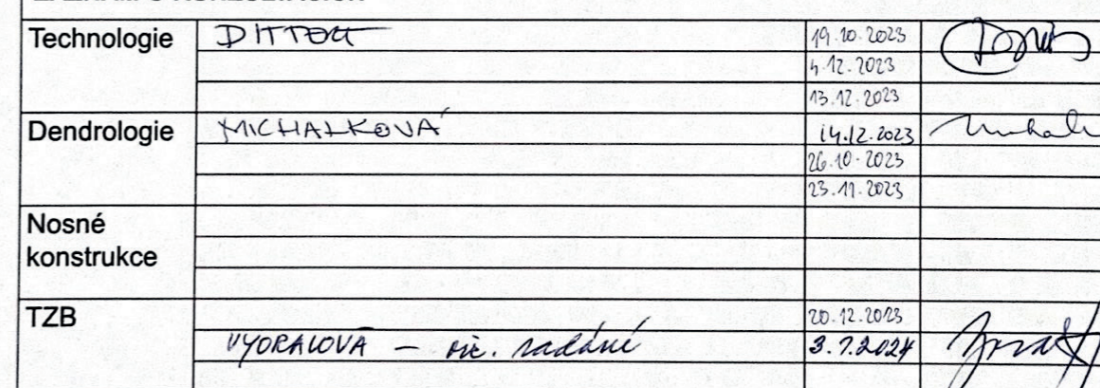 Technologie DITTERT 19.10.2023
4.12.2023
13.12.2023
Dendrologie MICHALKOVÁ 14.12.2023
26.10.2023
23.11.2023
Nosné
konstrukce
TZB 20.12.2023
VYORALOVÁ – 3.1.2024